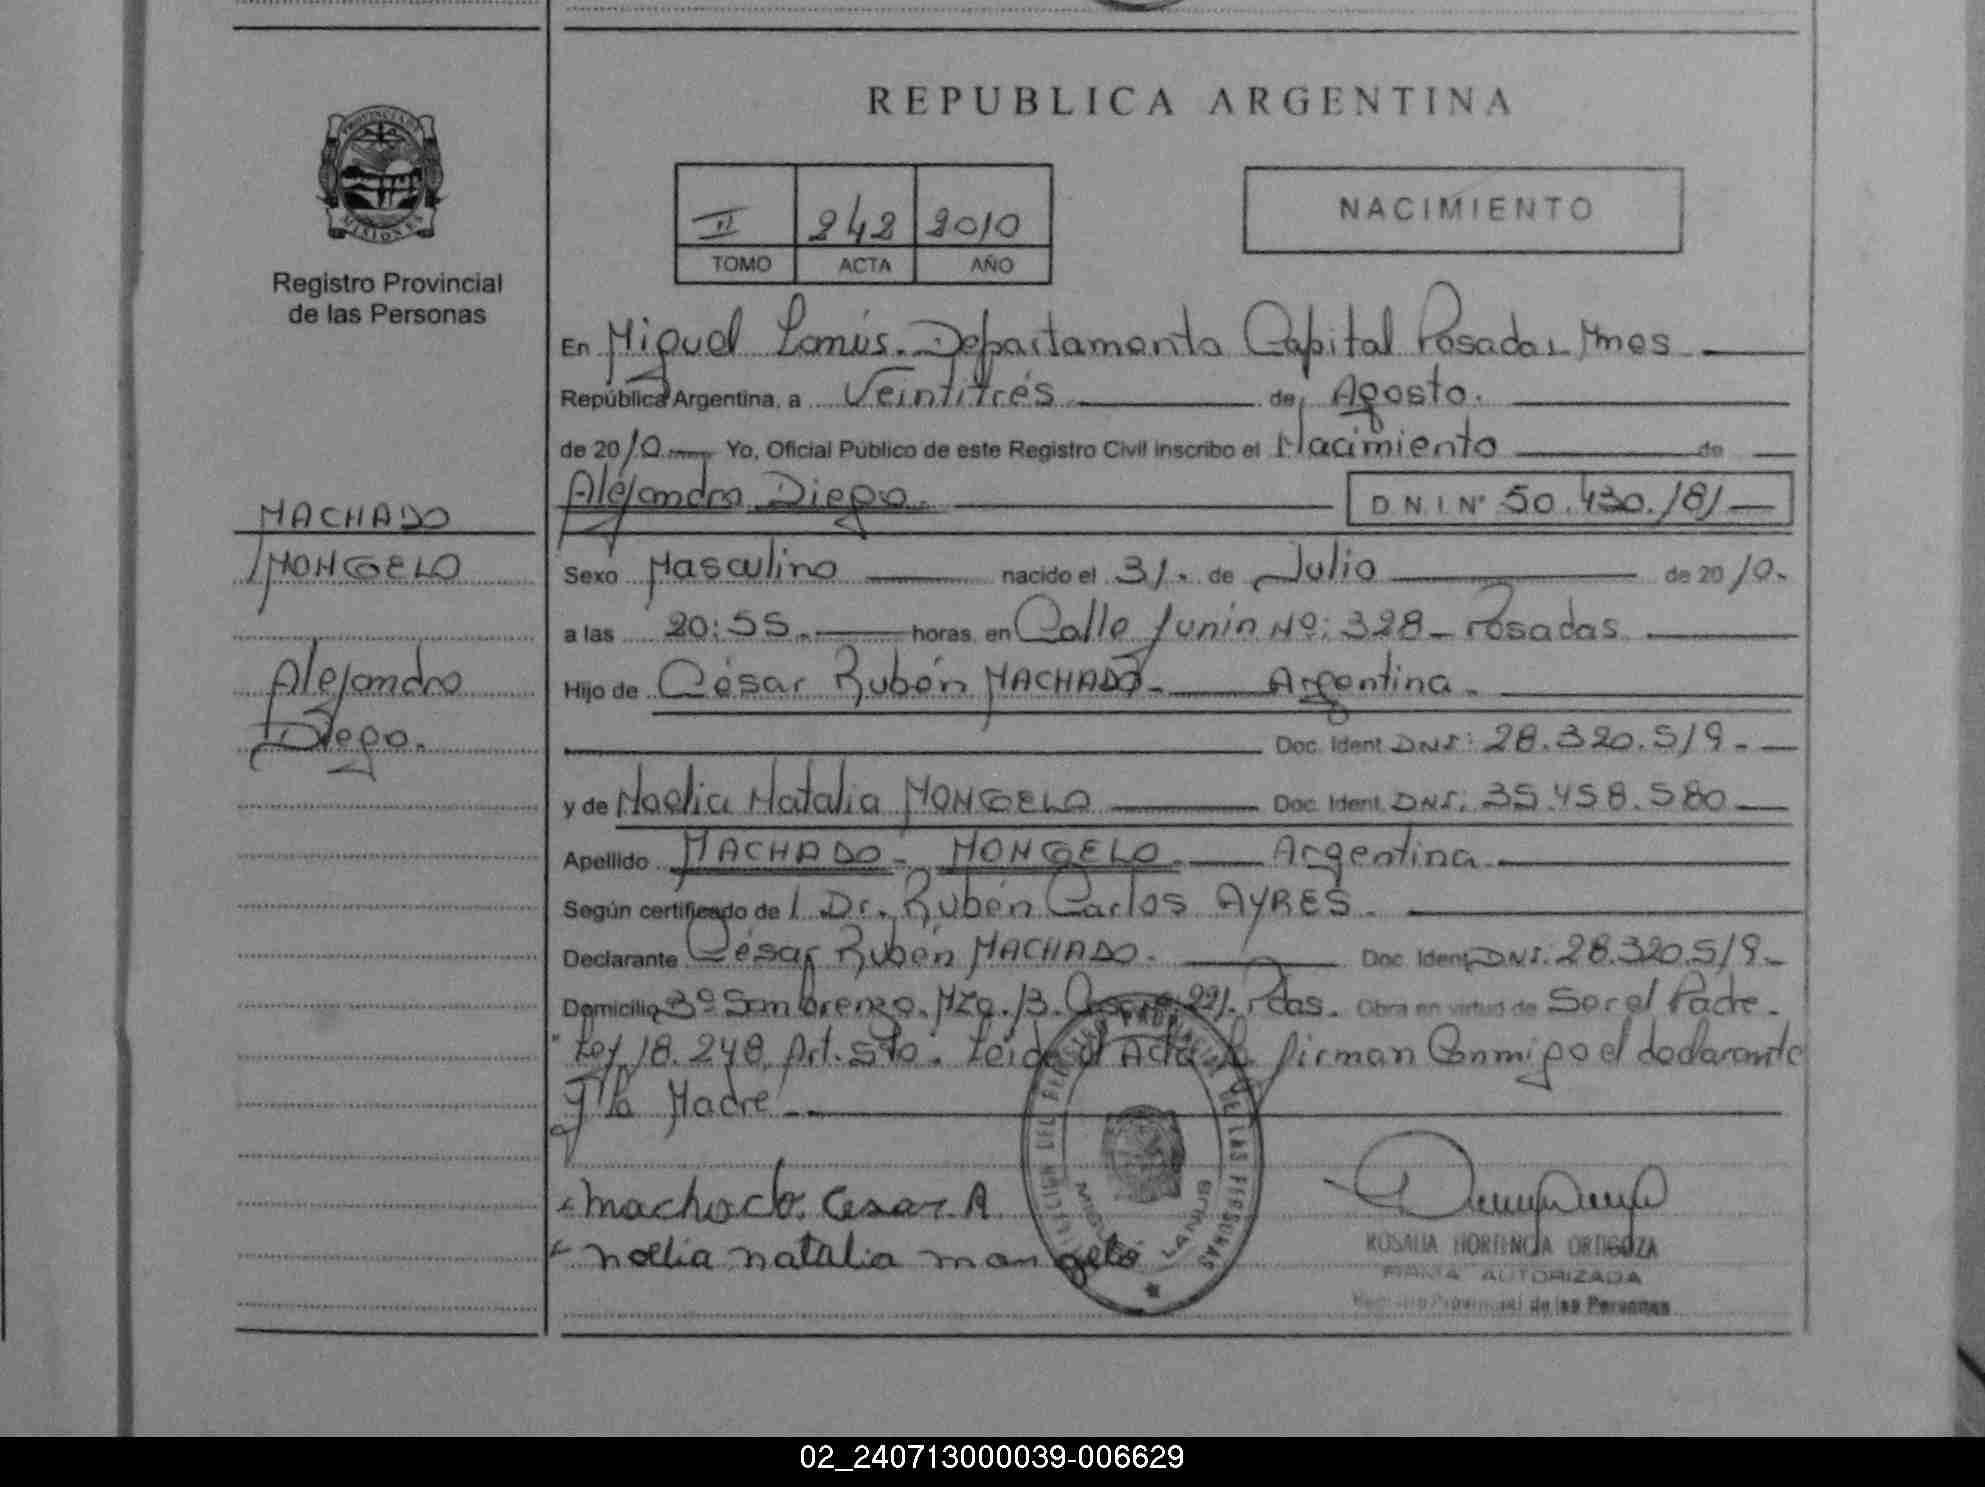 REPUBLICA ARGENTINA
PROVINCIA DE
MISIONES
Registro Provincial
de las Personas
II 242 2010
TOMO ACTA AÑO
NACIMIENTO
En Miguel Lanús. Departamento Capital Posadas Mnes
República Argentina, a Veintitrés de Agosto.
de 2010 Yo, Oficial Público de este Registro Civil inscribo el Nacimiento de
Alejandro Diego. D.N.I. Nº 50.430.181
MACHADO
MONGELO
Alejandro
Diego.
Sexo Masculino nacido el 31. de Julio de 2010.
a las 20:55. horas, en Calle Junín Nº: 328 - Posadas
Hijo de César Rubén MACHADO - Argentina.
Doc. Ident. DNI: 28.320.519.
y de Noelia Natalia MONGELO Doc. Ident. DNI: 35.458.580
Apellido MACHADO - MONGELO. Argentina
Según certificado de l Dr. Rubén Carlos AYRES.
Declarante César Rubén MACHADO. Doc. Ident. DNI. 28.320.519.
Domicilio Mza. 13. 221. Pdas. Obra en virtud de Ser el Padre.
"Ley 18.248, Art. 5to. Leida el Acta la firman Conmigo el declarante
y la Madre
Machado Cesar R
noelia natalia mongelo
MIGUEL LANUS
ROSALIA HORTENCIA ORTIGOZA
FIRMA AUTORIZADA
Registro Provincial de las Personas
02_240713000039-006629